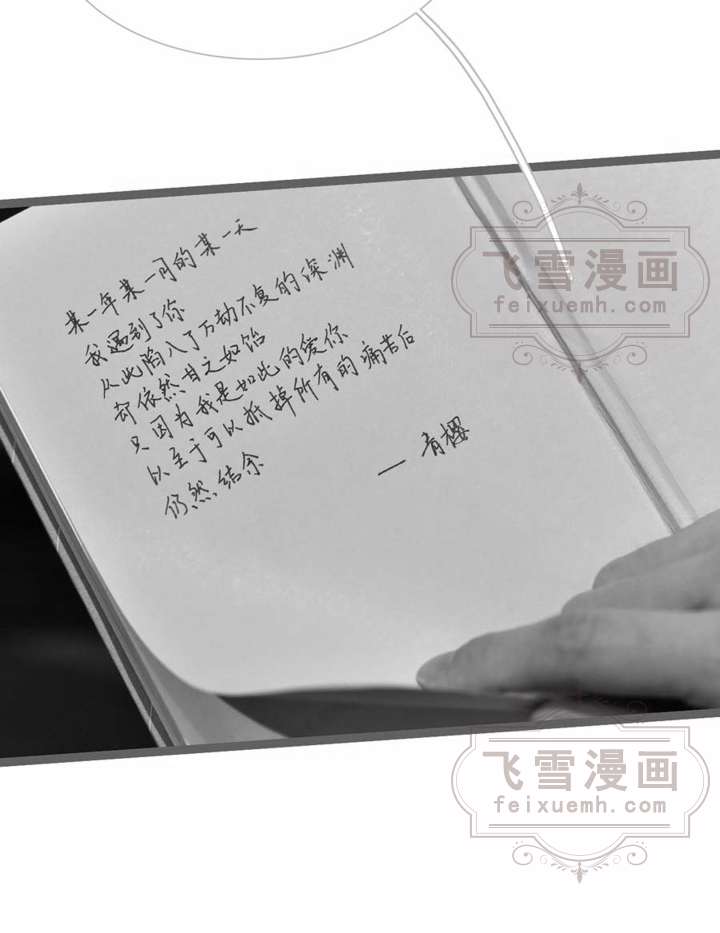 某一年某一月的某一天
我遇到了你
从此陷入了万劫不复的深渊
却依然甘之如饴
只因为我是如此的爱你
以至于可以抵掉所有的痛苦后
仍然结余
— 青樱
飞雪漫画
feixuemh.com
飞雪漫画
feixuemh.com